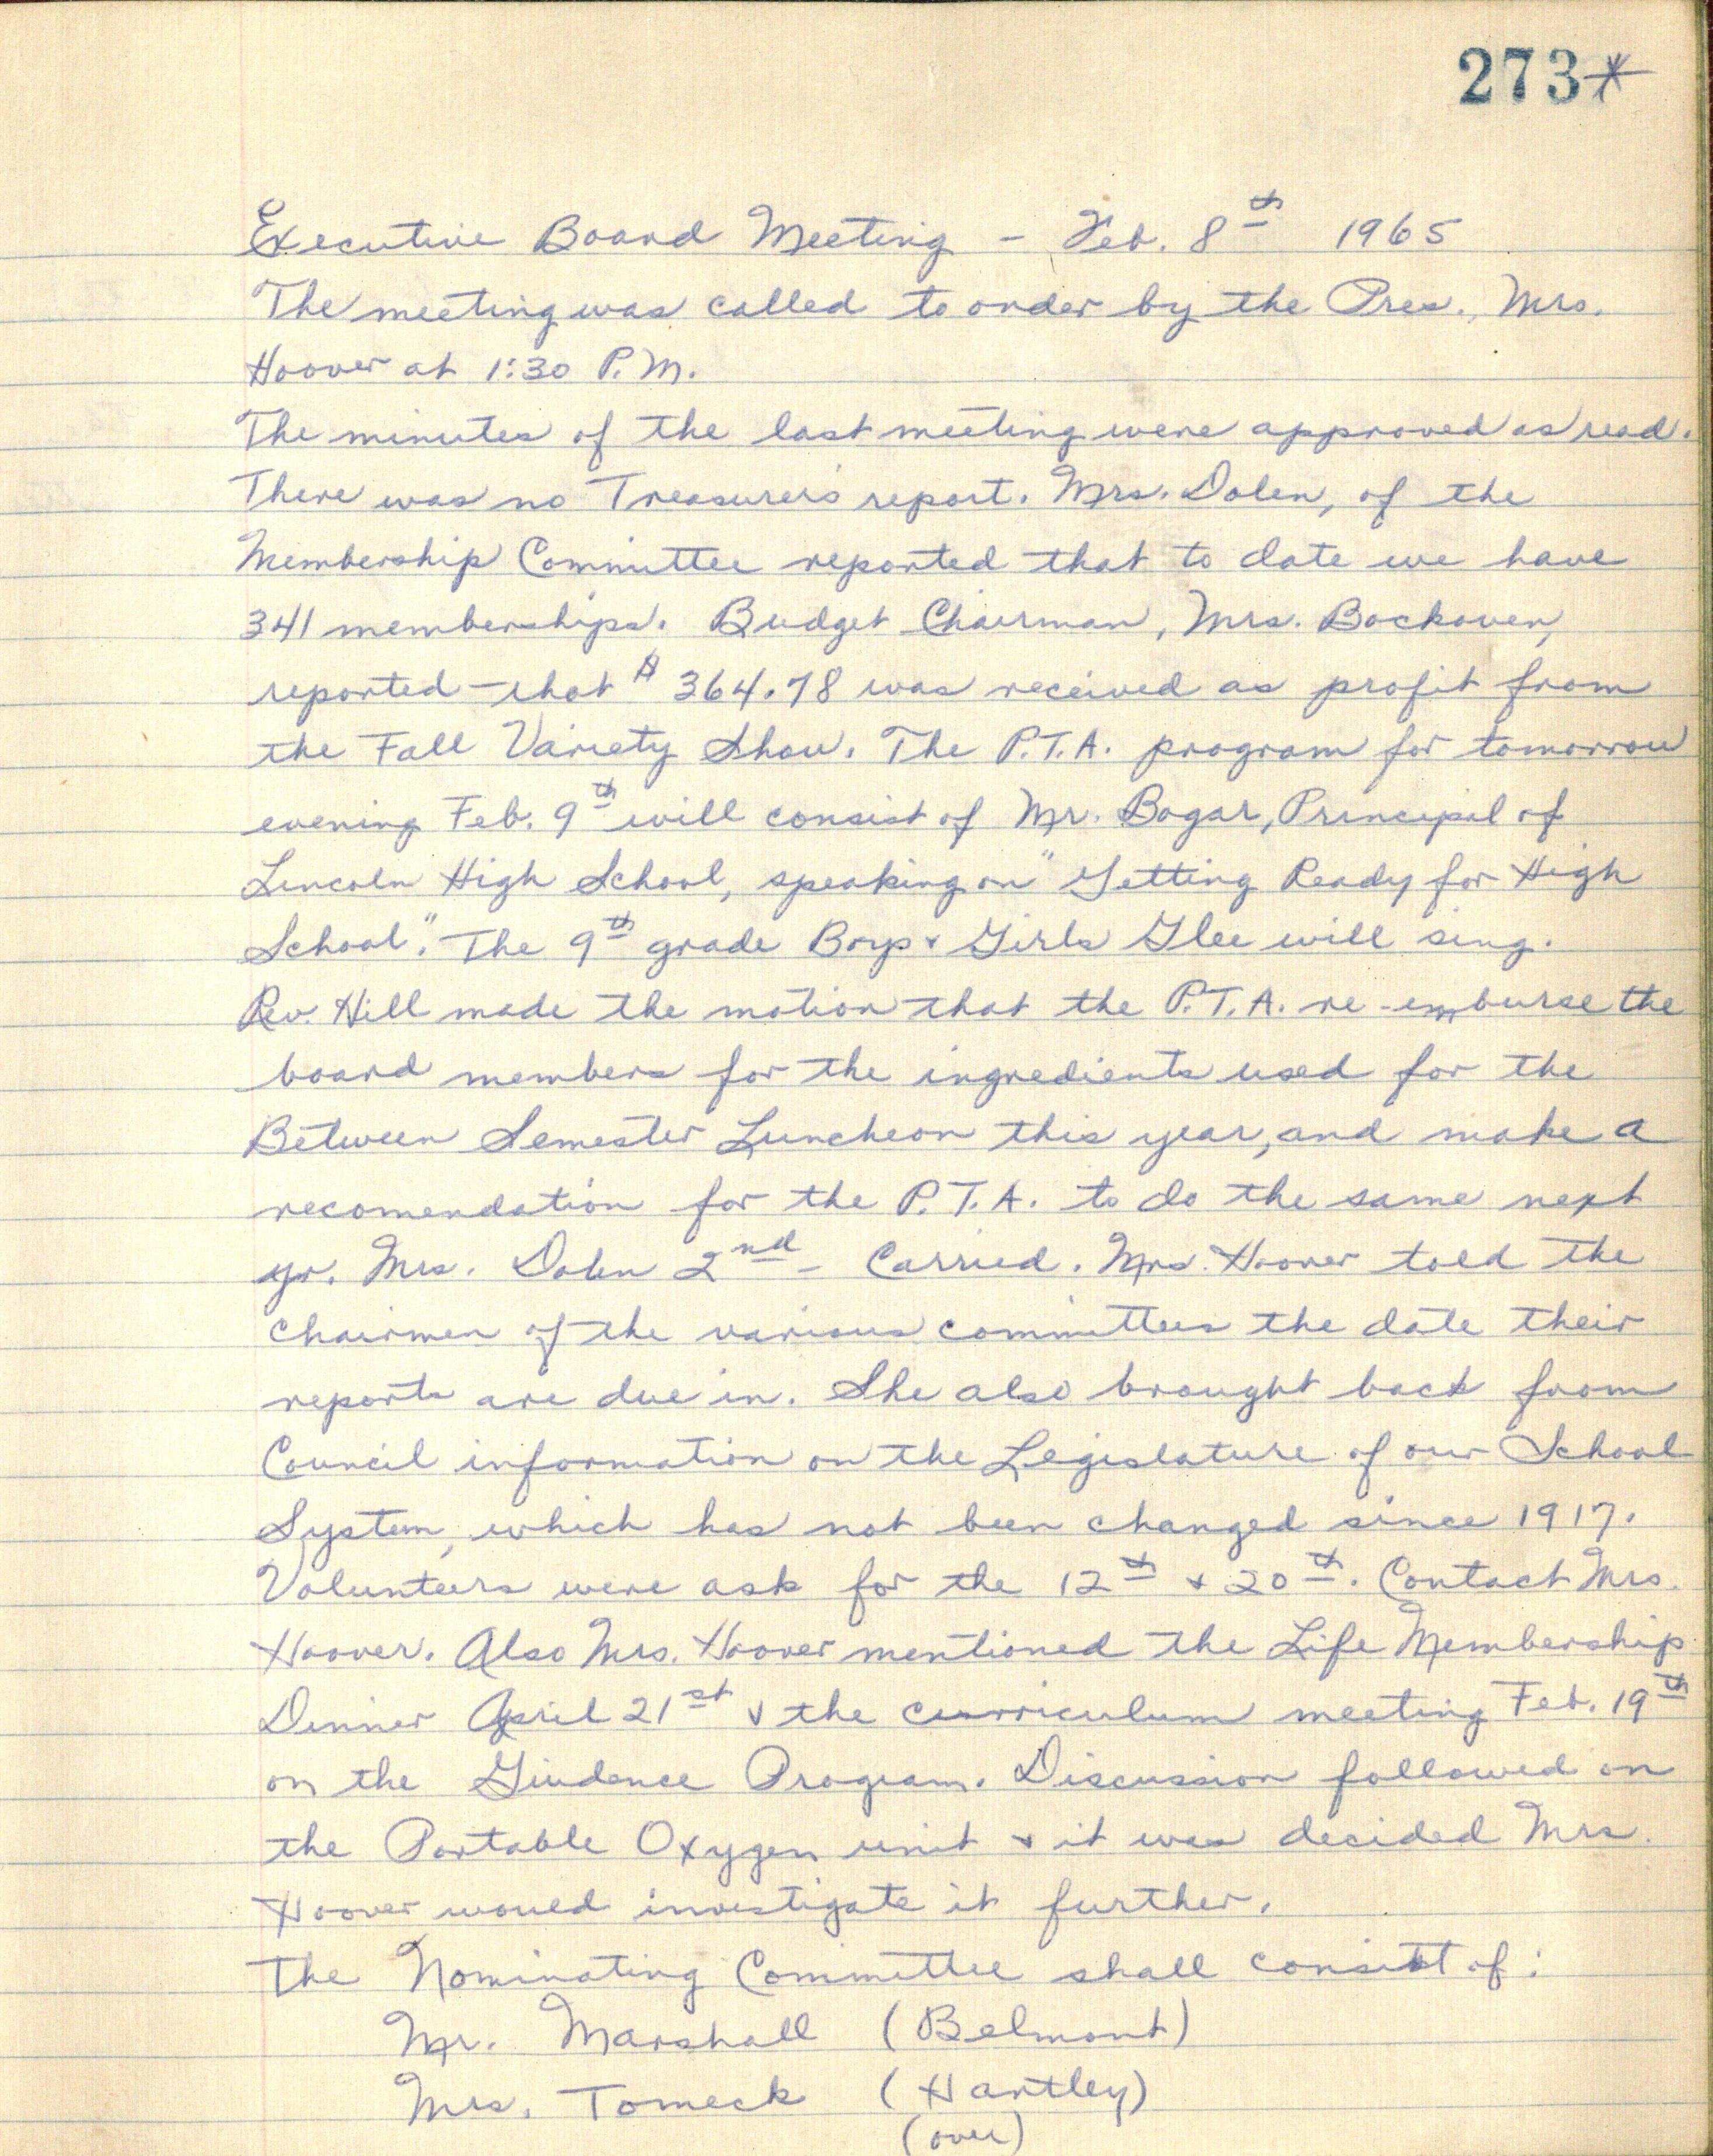 273*
Executive Board Meeting - Feb. 8th 1965
The meeting was called to order by the Pres., Mrs.
Hoover at 1:30 P.M.
The minutes of the last meeting were approved as read.
There was no Treasurer's report. Mrs. Dolen, of the
Membership Committee reported that to date we have
341 memberships. Budget Chairman, Mrs. Bockoven,
reported that $364.78 was received as profit from
the Fall Variety Show. The P.T.A. program for tomorrow
evening Feb. 9th will consist of Mr. Bogar, Principal of
Lincoln High School, speaking on "Getting Ready for High
School". The 9th grade Boys & Girls Glee will sing.
Rev. Hill made the motion that the P.T.A. re-emburse the
board members for the ingredients used for the
Between Semester Luncheon this year, and make a
recomendation for the P.T.A. to do the same next
yr. Mrs. Dolen 2nd - Carried. Mrs. Hoover told the
chairmen of the various committees the date their
reports are due in. She also brought back from
Council information on the Legislature of our School
System, which has not been changed since 1917.
Volunteers were ask for the 12th & 20th. Contact Mrs.
Hoover. Also Mrs. Hoover mentioned the Life Membership
Dinner April 21st & the curriculum meeting Feb. 19th
on the Giudence Program. Discussion followed on
the Portable Oxygen unit & it was decided Mrs.
Hoover would investigate it further.
The Nominating Committee shall consist of:
Mr. Marshall (Belmont)
Mrs. Tomeck (Hartley)
(over)